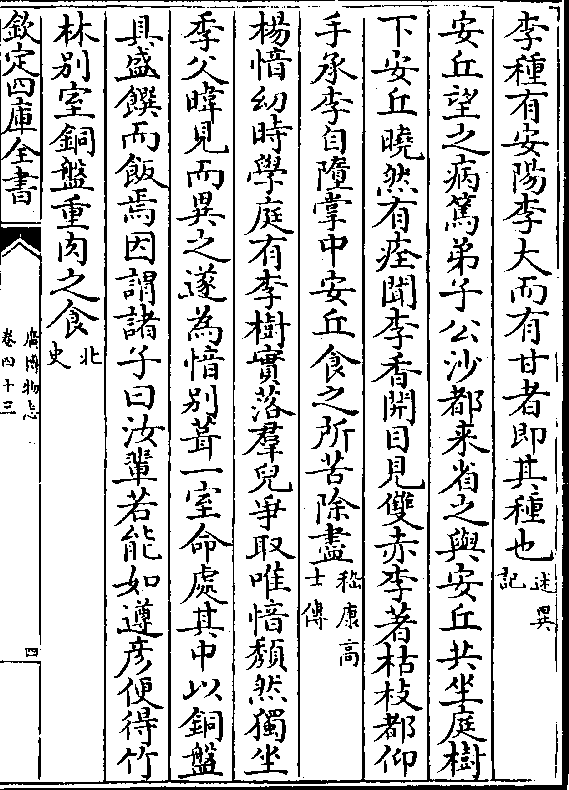 李種有安陽李大而有甘者即其種也述異記
安丘望之病篤弟子公沙都来省之與安丘共坐庭樹
下安丘曉然有痊聞李香開目見雙赤李著枯枝都仰
手承李自墮掌中安丘食之所苦除盡嵇康高士傳
楊愔幼時學庭有李樹實落羣兒爭取唯愔頽然獨坐
季父暐見而異之遂為愔別葺一室命處其中以銅盤
具盛饌而飯焉因謂諸子曰汝輩若能如遵彦便得竹
林別室銅盤重肉之食北史
欽定四庫全書
廣博物志
卷四十三
四